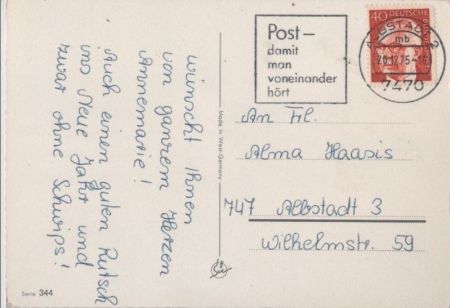 wünscht Ihnen
von ganzem Herzen
Annemarie!
Auch einen guten Rutsch
ins Neue Jahr und
zwar ohne Schwips!
Serie 344
Made in West-Germany
Post –
damit
man
voneinander
hört
40 DEUTSCHE
ALBSTADT 2
mb
29.12.75
7470
An Frl.
Alma Haasis
747 Albstadt 3
Wilhelmstr. 59